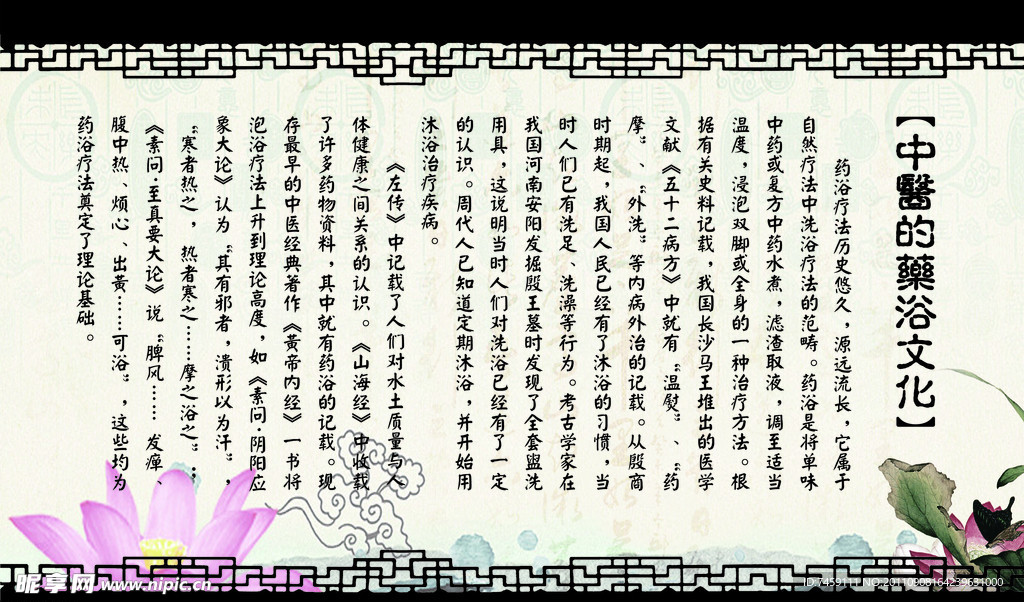 【中醫的藥浴文化】
药浴疗法历史悠久，源远流长，它属于
自然疗法中洗浴疗法的范畴。药浴是将单味
中药或复方中药水煮，滤渣取液，调至适当
温度，浸泡双脚或全身的一种治疗方法。根
据有关史料记载，我国长沙马王堆出的医学
文献《五十二病方》中就有“温熨”、“药
摩”、“外洗”等内病外治的记载。从殷商
时期起，我国人民已经有了沐浴的习惯，当
时人们已有洗足、洗澡等行为。考古学家在
我国河南安阳发掘殷王墓时发现了全套盥洗
用具，这说明当时人们对洗浴已经有了一定
的认识。周代人已知道定期沐浴，并开始用
沐浴治疗疾病。
《左传》中记载了人们对水土质量与人
体健康之间关系的认识。《山海经》中收载
了许多药物资料，其中就有药浴的记载。现
存最早的中医经典著作《黄帝内经》一书将
泡浴疗法上升到理论高度，如《素问·阴阳应
象大论》认为“其有邪者，渍形以为汗”，
“寒者热之，热者寒之……摩之浴之”；
《素问·至真要大论》说“脾风……发瘅、
腹中热、烦心、出黄……可浴”，这些均为
药浴疗法奠定了理论基础。
昵享网 www.nipic.cn
ID:7459111 NO:20110908164239631000